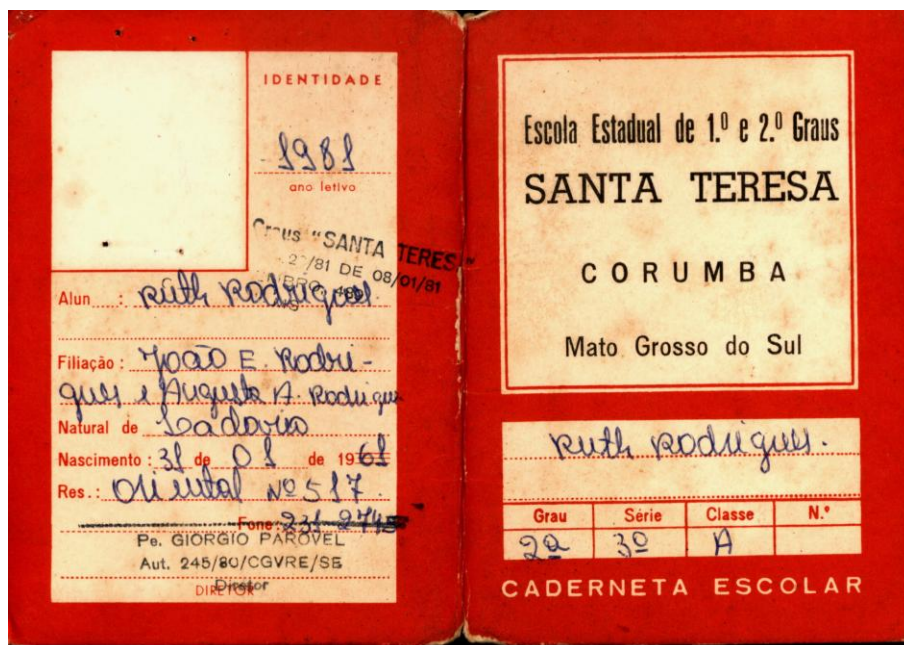 IDENTIDADE
1981
ano letivo
Graus "SANTA TERESA"
/81 DE 08/01/81
Alun : Ruth Rodrigues.
Filiação : João E. Rodri-
gues e Augusta A. Rodrigues
Natural de Ladario
Nascimento : 31 de 01 de 1961
Res. : Oriental Nº 517.
Fone 231-2745
Pe. GIORGIO PAROVEL
Aut. 245/80/CGVRE/SE
Diretor
DIRETOR
Escola Estadual de 1.º e 2.º Graus
SANTA TERESA
CORUMBA
Mato Grosso do Sul
Ruth Rodrigues.
Grau Série Classe N.º
2º 3º A
CADERNETA ESCOLAR